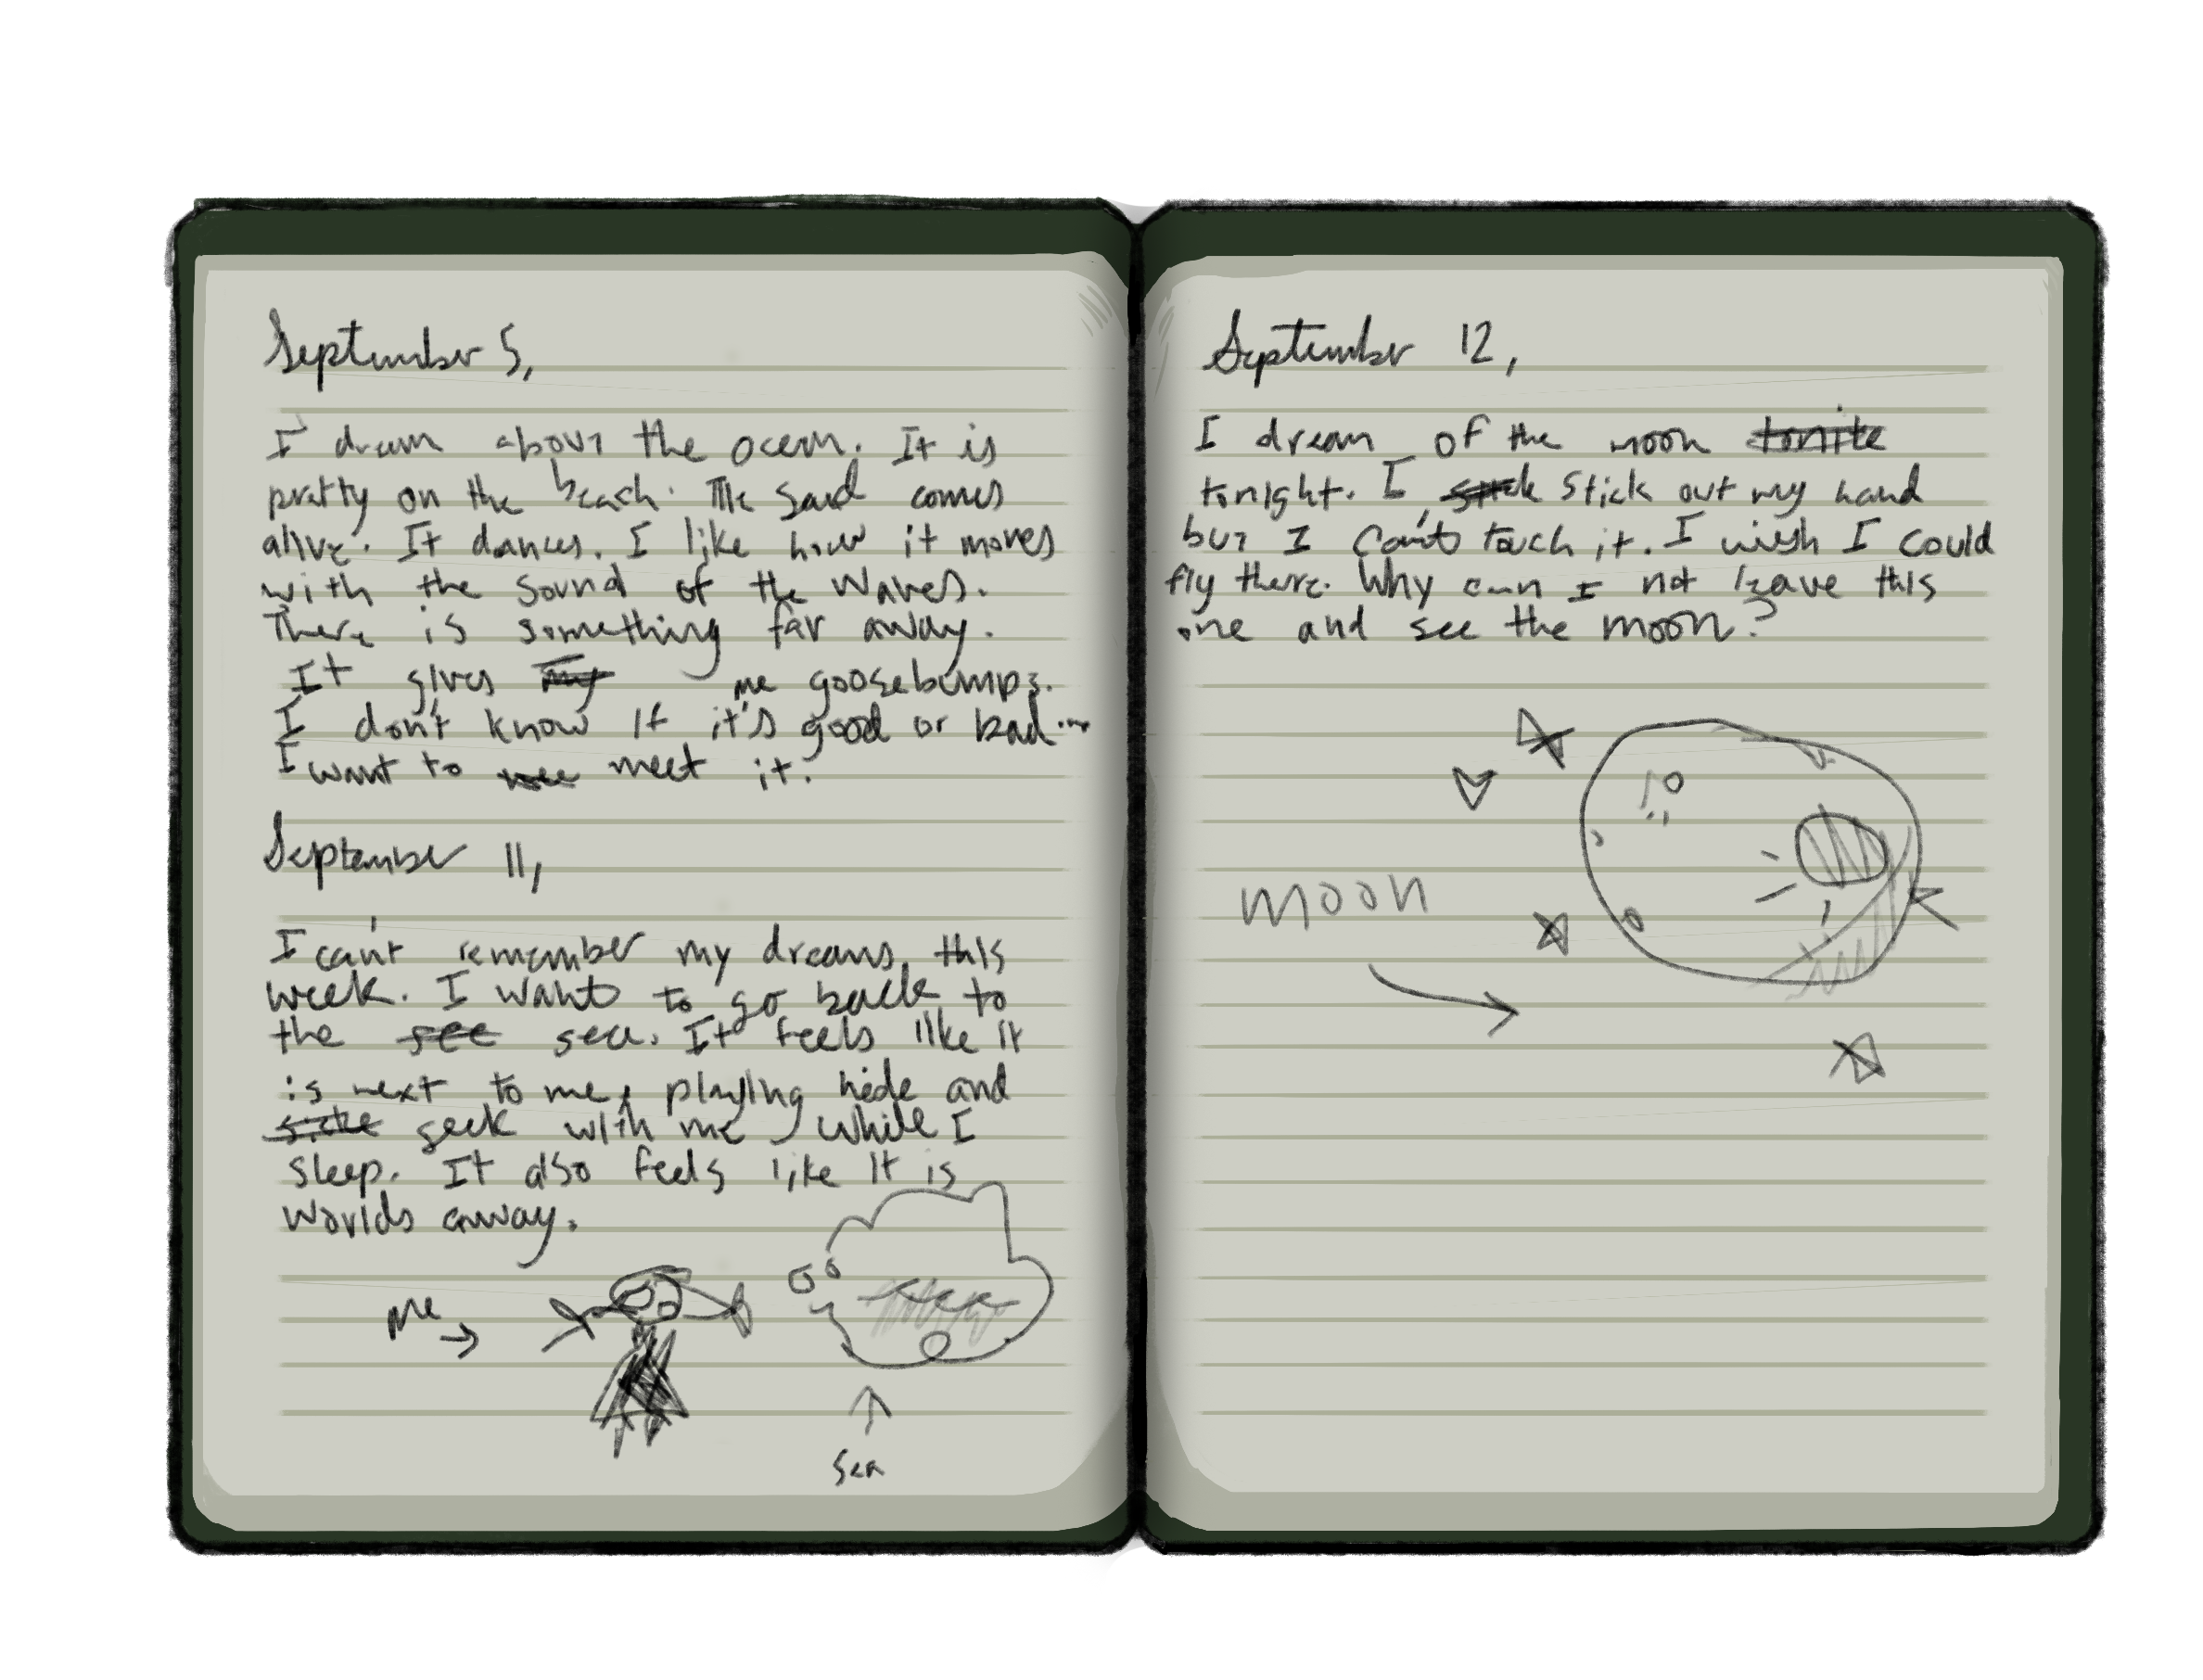 September 5,
I dream about the ocean. It is
pretty on the beach. The sand comes
alive. It dances. I like how it moves
with the sound of the waves.
There is something far away.
It gives my me goosebumps.
I don't know if it's good or bad...
I want to meet it.
September 11,
I can't remember my dreams this
week. I want to go back to
the see sea. It feels like it
is next to me, playing hide and
seek with me while I
sleep. It also feels like it is
worlds away.
me
sea
September 12,
I dream of the moon tonite
tonight. I stick out my hand
but I can't touch it. I wish I could
fly there. Why can I not leave this
one and see the moon?
moon